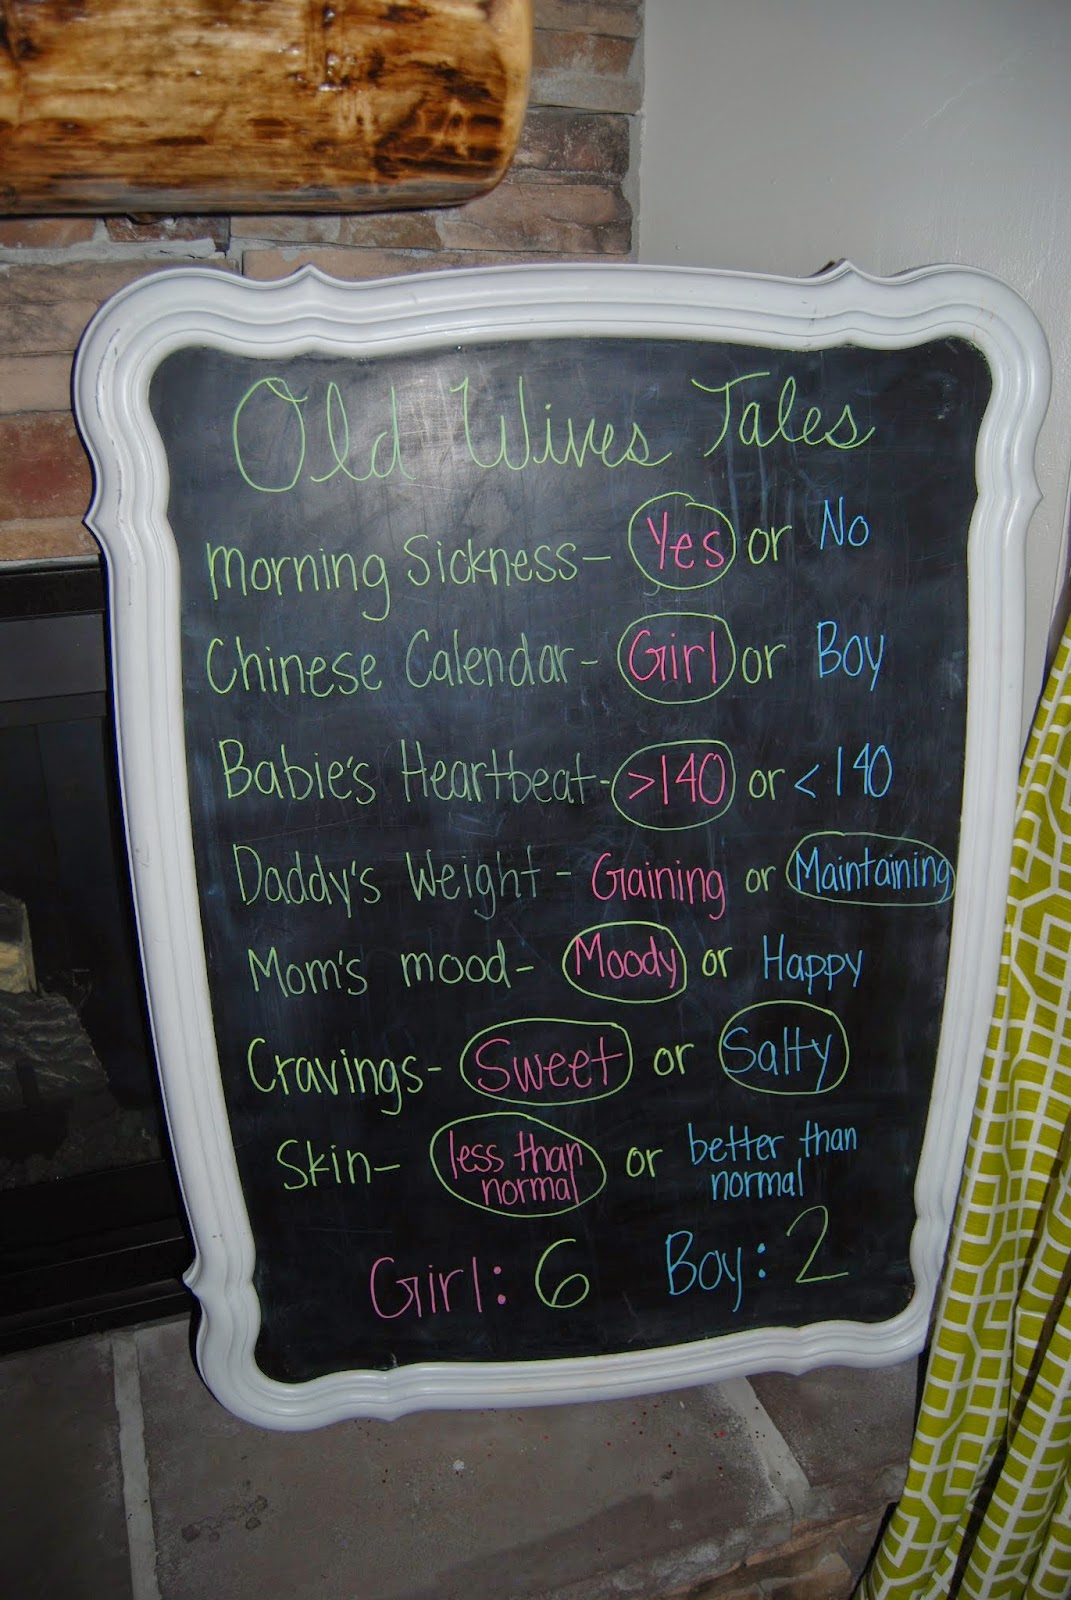 Old Wives Tales
Morning Sickness- Yes or No
Chinese Calendar- Girl or Boy
Babie's Heartbeat- >140 or <140
Daddy's Weight - Gaining or Maintaining
Mom's mood- Moody or Happy
Cravings- Sweet or Salty
Skin- less than normal or better than normal
Girl: 6 Boy: 2